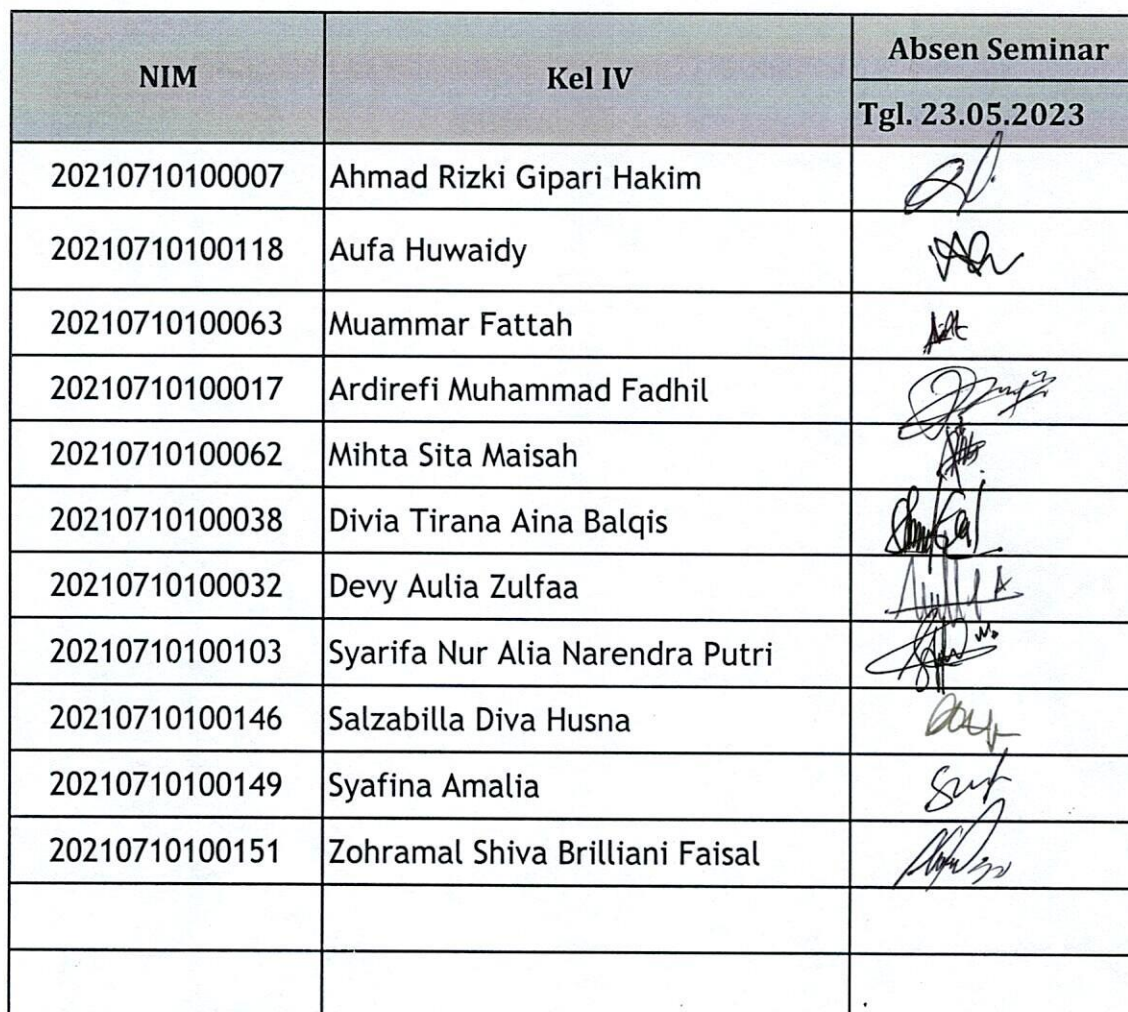 NIM Kel IV Absen Seminar
Tgl. 23.05.2023
20210710100007 Ahmad Rizki Gipari Hakim
20210710100118 Aufa Huwaidy
20210710100063 Muammar Fattah
20210710100017 Ardirefi Muhammad Fadhil
20210710100062 Mihta Sita Maisah
20210710100038 Divia Tirana Aina Balqis
20210710100032 Devy Aulia Zulfaa
20210710100103 Syarifa Nur Alia Narendra Putri
20210710100146 Salzabilla Diva Husna
20210710100149 Syafina Amalia
20210710100151 Zohramal Shiva Brilliani Faisal